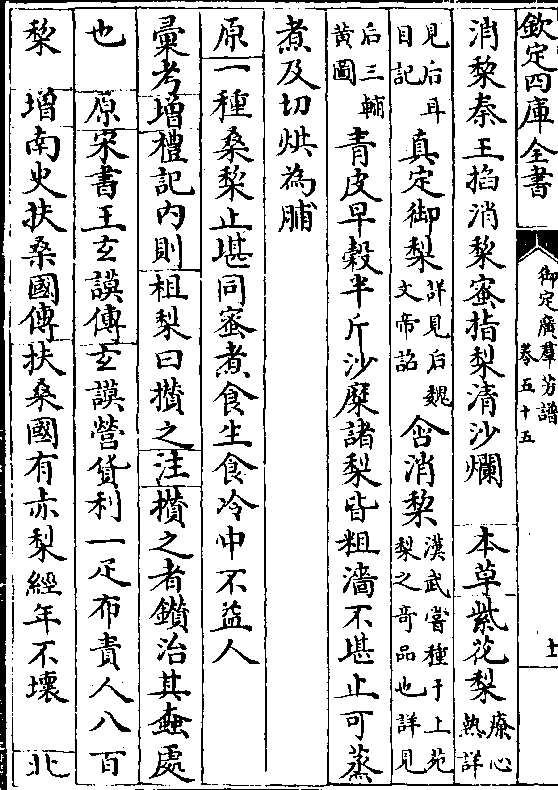 欽定四庫全書　御定廣羣芳譜　卷五十五　十一
消黎秦王掐消黎蜜指梨清沙爛　本草紫花梨療心熱詳
見后耳目記真定御梨詳見后魏文帝詔含消黎漢武嘗種于上苑梨之奇品也詳見
后三輔黄圖青皮早穀半斤沙糜諸梨皆粗濇不堪止可蒸
煮及切烘為脯
原一種桑黎止堪同蜜煮食生食冷中不益人
彚考增禮記内則柤梨曰攢之注攢之者鑽治其蟲處
也　原宋書王玄謨傳玄謨營貨利一疋布責人八百
黎　增南史扶桑國傳扶桑國有赤梨經年不壞　北